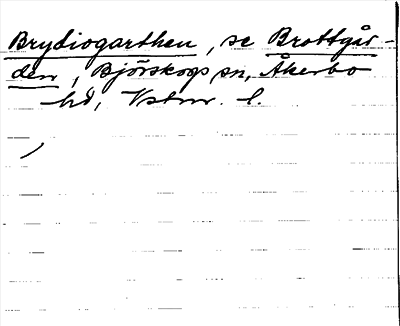 Brydiogarthen, se Brottgår-
den, Björskogs sn, Åkerbo
hd, Vstm. l.